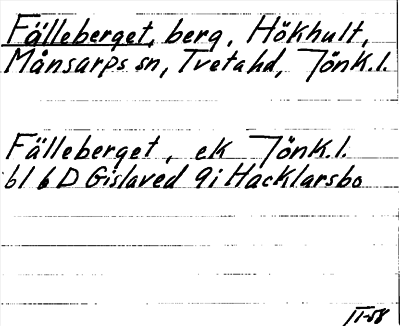 Fälleberget, berg, Hökhult,
Månsarps sn, Tveta hd, Jönk.l.
Fälleberget, ek Jönk.l.
bl 6 D Gislaved 9i Hacklarsbo
II-58